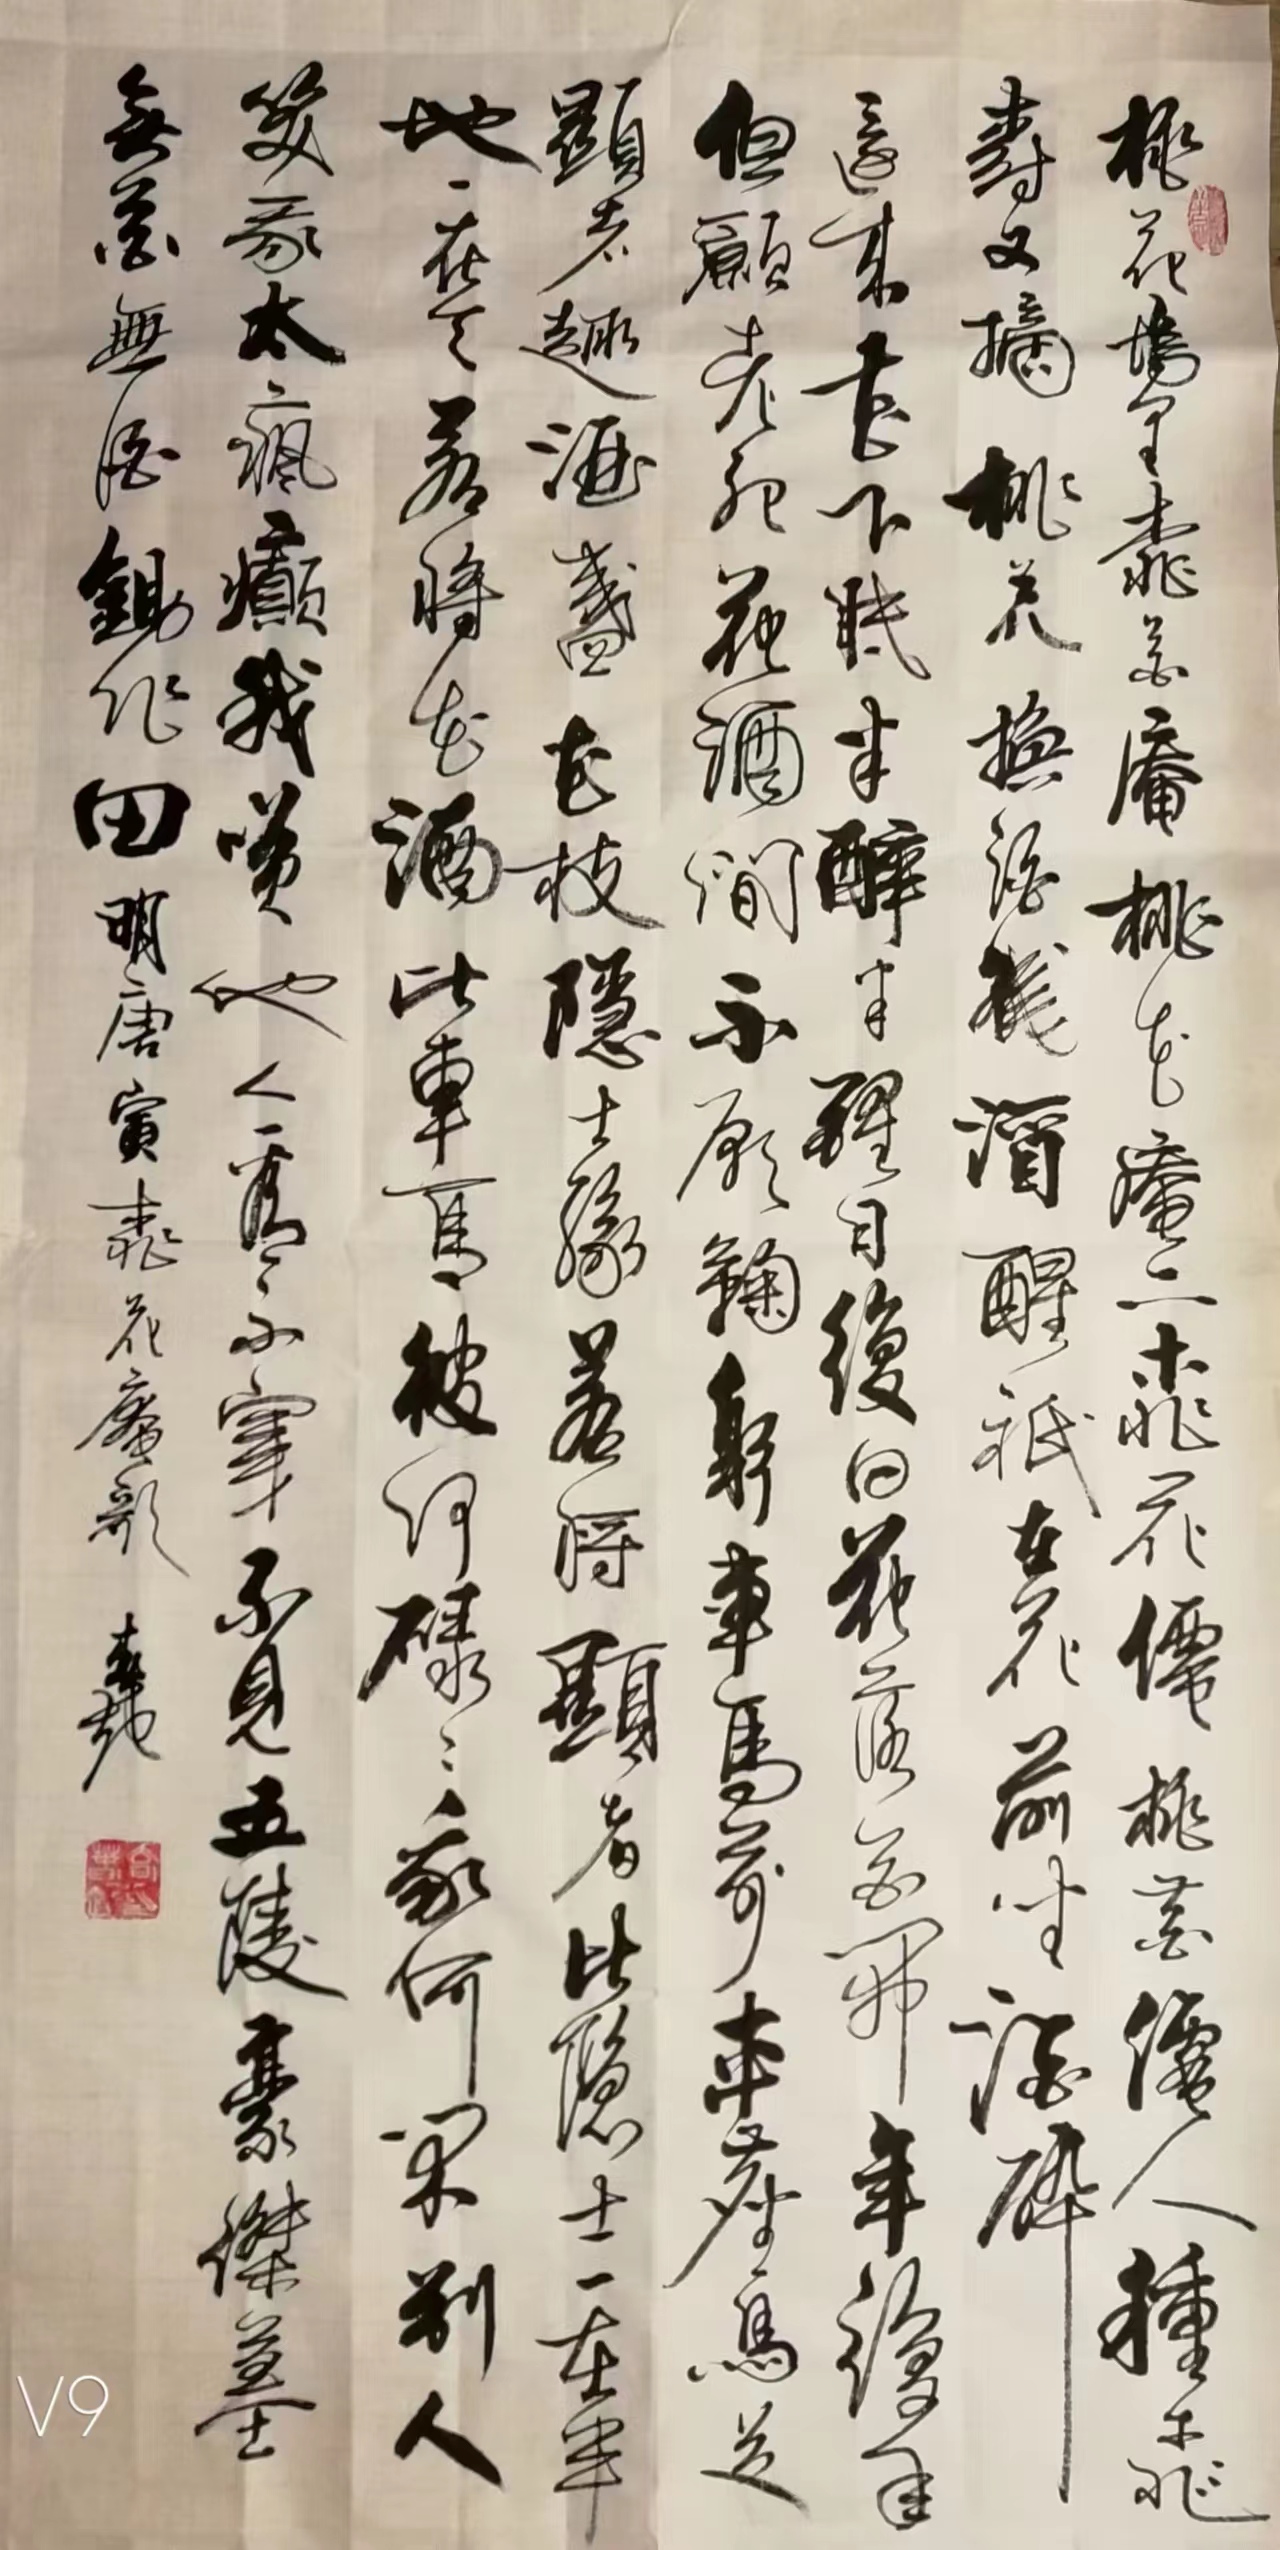 桃花塢里桃花庵桃花庵下桃花僊桃花僊人種桃
樹又摘桃花換酒錢酒醒祇在花前坐酒醉
還來花下眠半醉半醒日復日花落花開年復年
但願老死花酒間不願鞠躬車馬前車塵馬足
顯者趣酒盞花枝隱士緣若將顯者比隱士一在平
地一在天若將花酒比車馬彼何碌〻我何閑別人
笑我太瘋癲我笑他人看不穿不見五陵豪傑墓
無花無酒鋤作田 明唐寅桃花庵歌
V9